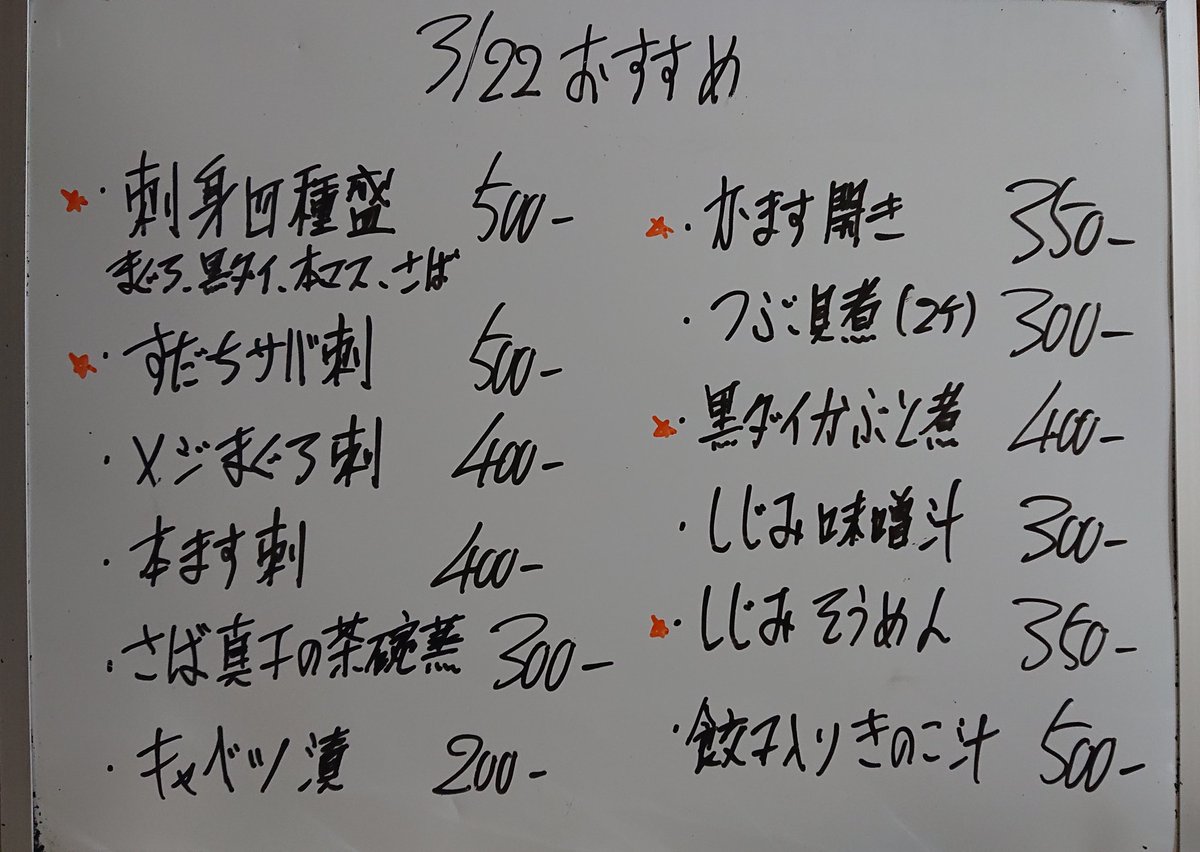 3/22 おすすめ
★・刺身四種盛 500-
まぐろ、黒ダイ、本マス、さば
★・すだちサバ刺 500-
・メジまぐろ刺 400-
・本ます刺 400-
・さば真子の茶碗蒸 300-
・キャベツ漬 200-
★・かます開き 350-
・つぶ貝煮(2ケ) 300-
★・黒ダイかぶと煮 400-
・しじみ味噌汁 300-
★・しじみそうめん 350-
・餃子入りきのこ汁 500-